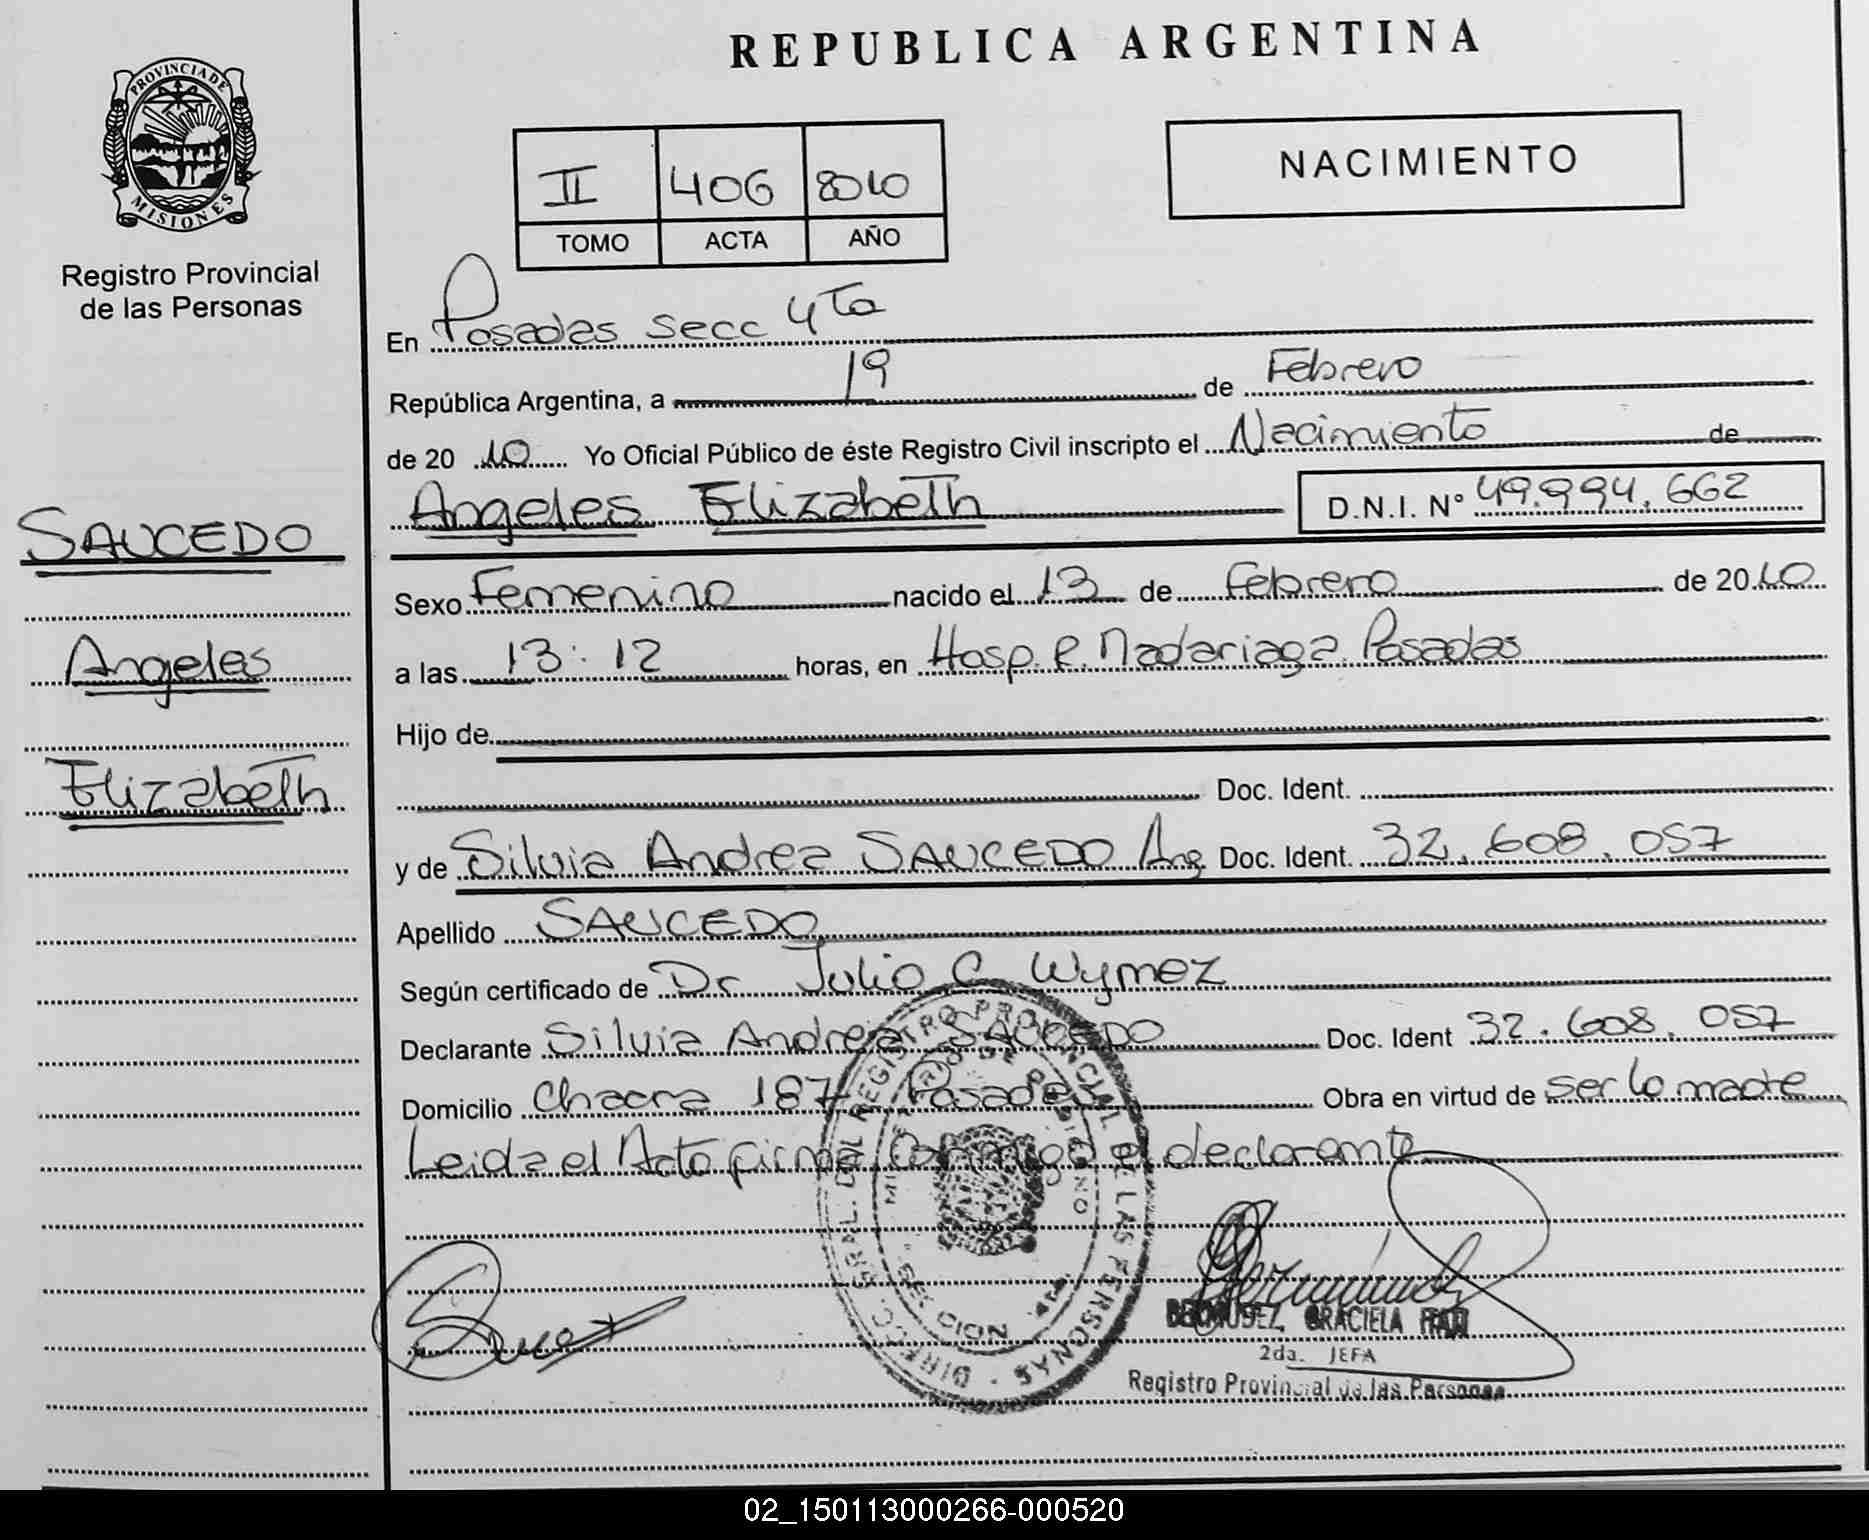 REPUBLICA ARGENTINA
PROVINCIA DE
MISIONES
Registro Provincial
de las Personas
II 406 2010
TOMO ACTA AÑO
NACIMIENTO
En Posadas secc 4Ta
República Argentina, a 19 de Febrero
de 2010 Yo Oficial Público de éste Registro Civil inscripto el Nacimiento de
Angeles Elizabeth D.N.I. N° 49.994.662
SAUCEDO
Angeles
Elizabeth
Sexo Femenino nacido el 13 de Febrero de 2010
a las 13:12 horas, en Hosp. R. Madariaga. Posadas
Hijo de
Doc. Ident.
y de Silvia Andrea SAUCEDO Arg Doc. Ident. 32.608.057
Apellido SAUCEDO
Según certificado de Dr Julio C Wymez
Declarante Silvia Andrea SAUCEDO Doc. Ident 32.608.057
Domicilio Chacra 187 Posadas Obra en virtud de ser la madre
Leida el Acta firma conmigo el declarante
DIRECC. GRAL. DEL REGISTRO PROVINCIAL DE LAS PERSONAS
SECCION 4ta.
BERMUDEZ, GRACIELA
2da. JEFA
Registro Provincial de las Personas
02_150113000266-000520